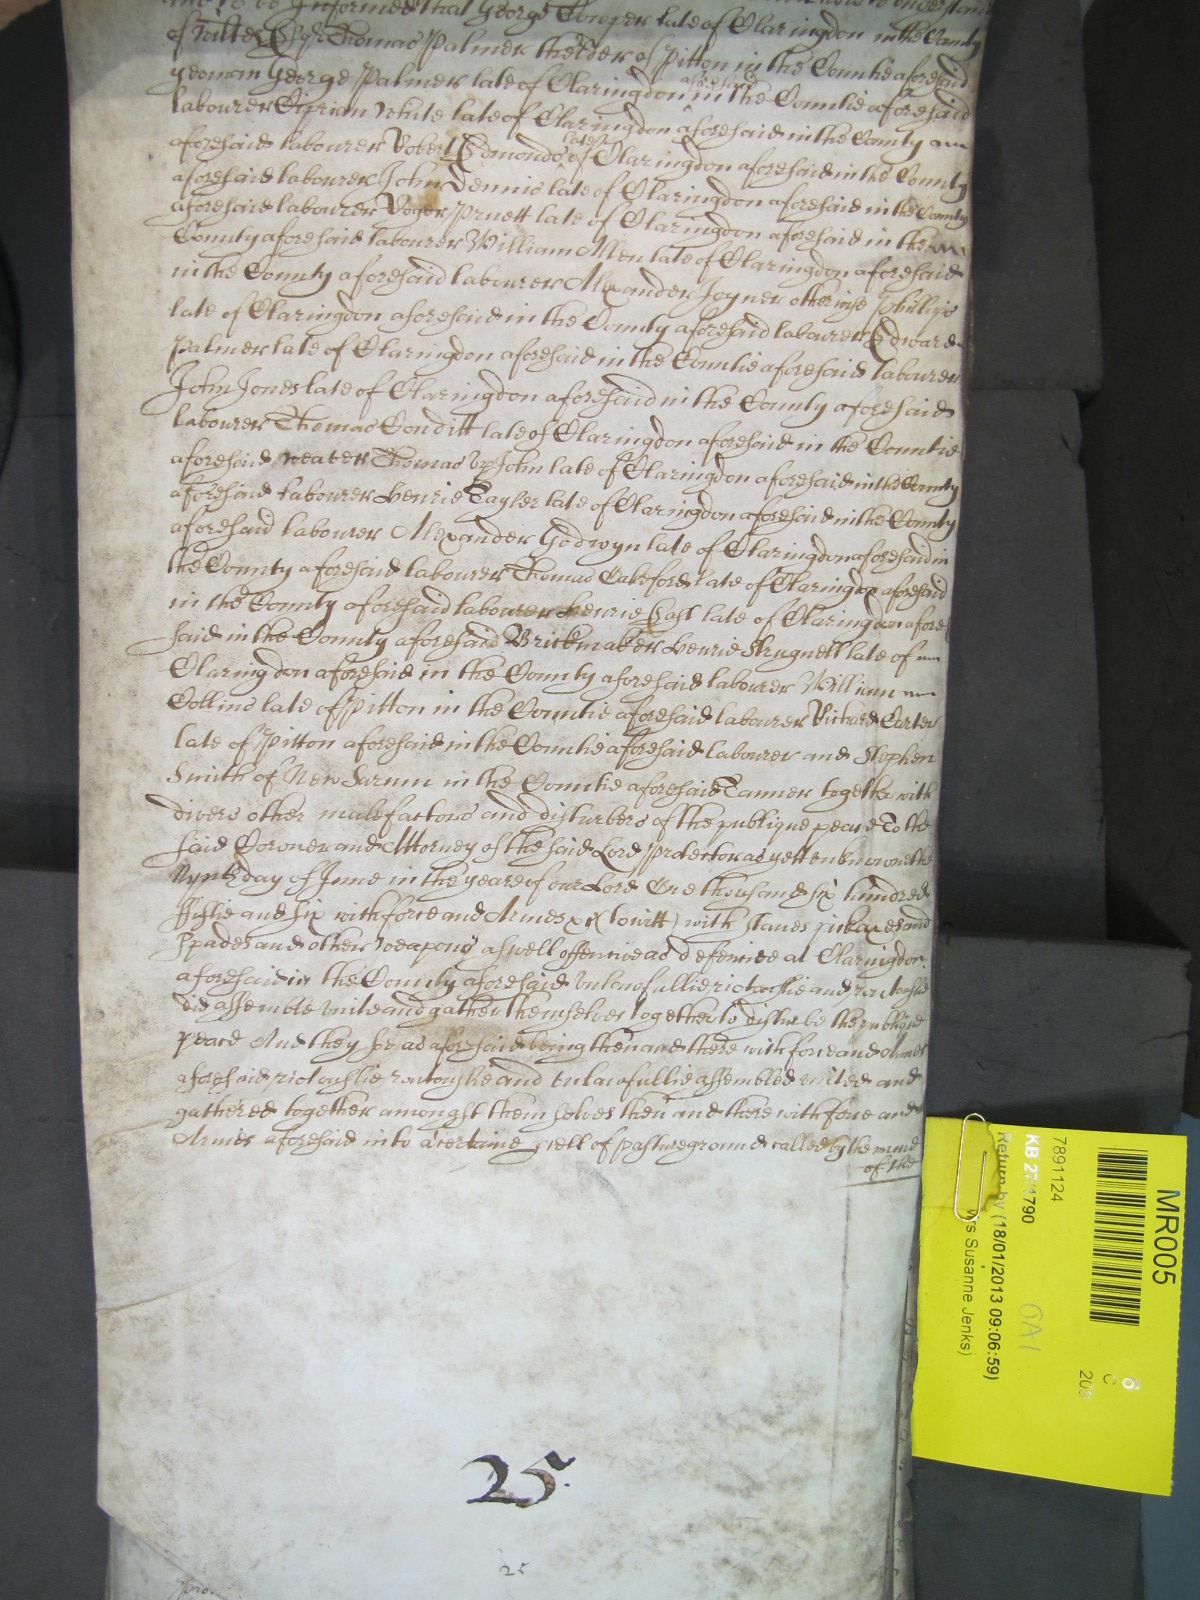 to be Informed that George Cowper late of Claringdon in the County
of Wiltes Esqr Thomas Palmer the elder of Pitton in the Countie aforesaid
yeoman George Palmer late of Claringdon aforesaid in the Countie aforesaid
labourer Ciprian White late of Claringdon aforesaid in the County
aforesaid labourer Robert Edmonds late of Claringdon aforesaid in the County
aforesaid labourer John Dennis late of Claringdon aforesaid in the County
aforesaid labourer Roger Pruett late of Claringdon aforesaid in the
County aforesaid labourer William Allen late of Claringdon aforesaid
in the County aforesaid labourer Alexander Joyner otherwise Phillips
late of Claringdon aforesaid in the County aforesaid labourer Edward
Palmer late of Claringdon aforesaid in the Countie aforesaid labourer
John Jones late of Claringdon aforesaid in the County aforesaid
labourer Thomas Conditt late of Claringdon aforesaid in the Countie
aforesaid weaver Thomas Upjohn late of Claringdon aforesaid in the County
aforesaid labourer Henrie Tayler late of Claringdon aforesaid in the County
aforesaid labourer Alexander Godwyn late of Claringdon aforesaid in
the County aforesaid labourer Thomas Cakeford late of Claringdon aforesaid
in the County aforesaid labourer Henrie East late of Claringdon afore
said in the County aforesaid Brickmaker Henrie Shugnell late of
Claringdon aforesaid in the County aforesaid labourer William
Collins late of Pitton in the Countie aforesaid labourer Richard Carter
late of Pitton aforesaid in the Countie aforesaid labourer and Stephen
Smith of New Sarum in the Countie aforesaid Tanner together with
divers other malefactors and disturbers of the publique peace To the
said Coroner and Attorney of the said Lord Protector as yett unknowne the
Nynth day of June in the yeare of our Lord One thousand six hundred
Fiftie and six with force and Armes &c (towitt) with staves pickaxes and
spades and other weapons aswell offencive as defencive at Claringdon
aforesaid in the County aforesaid unlawfullie riotouslie and routouslie
did assemble unite and gather themselves together to disturbe the publique
peace And they soe as aforesaid being then and there with force and Armes
aforesaid riotouslie routouslie and unlawfullie assembled united and
gathered together amongst themselves then and there with force and
Armes aforesaid into a certaine of pasture ground called by the name
of the
25.
25
MR005
7891124
KB 27/1790
Return by (18/01/2013 09:06:59)
Susanne Jenks)
6
C